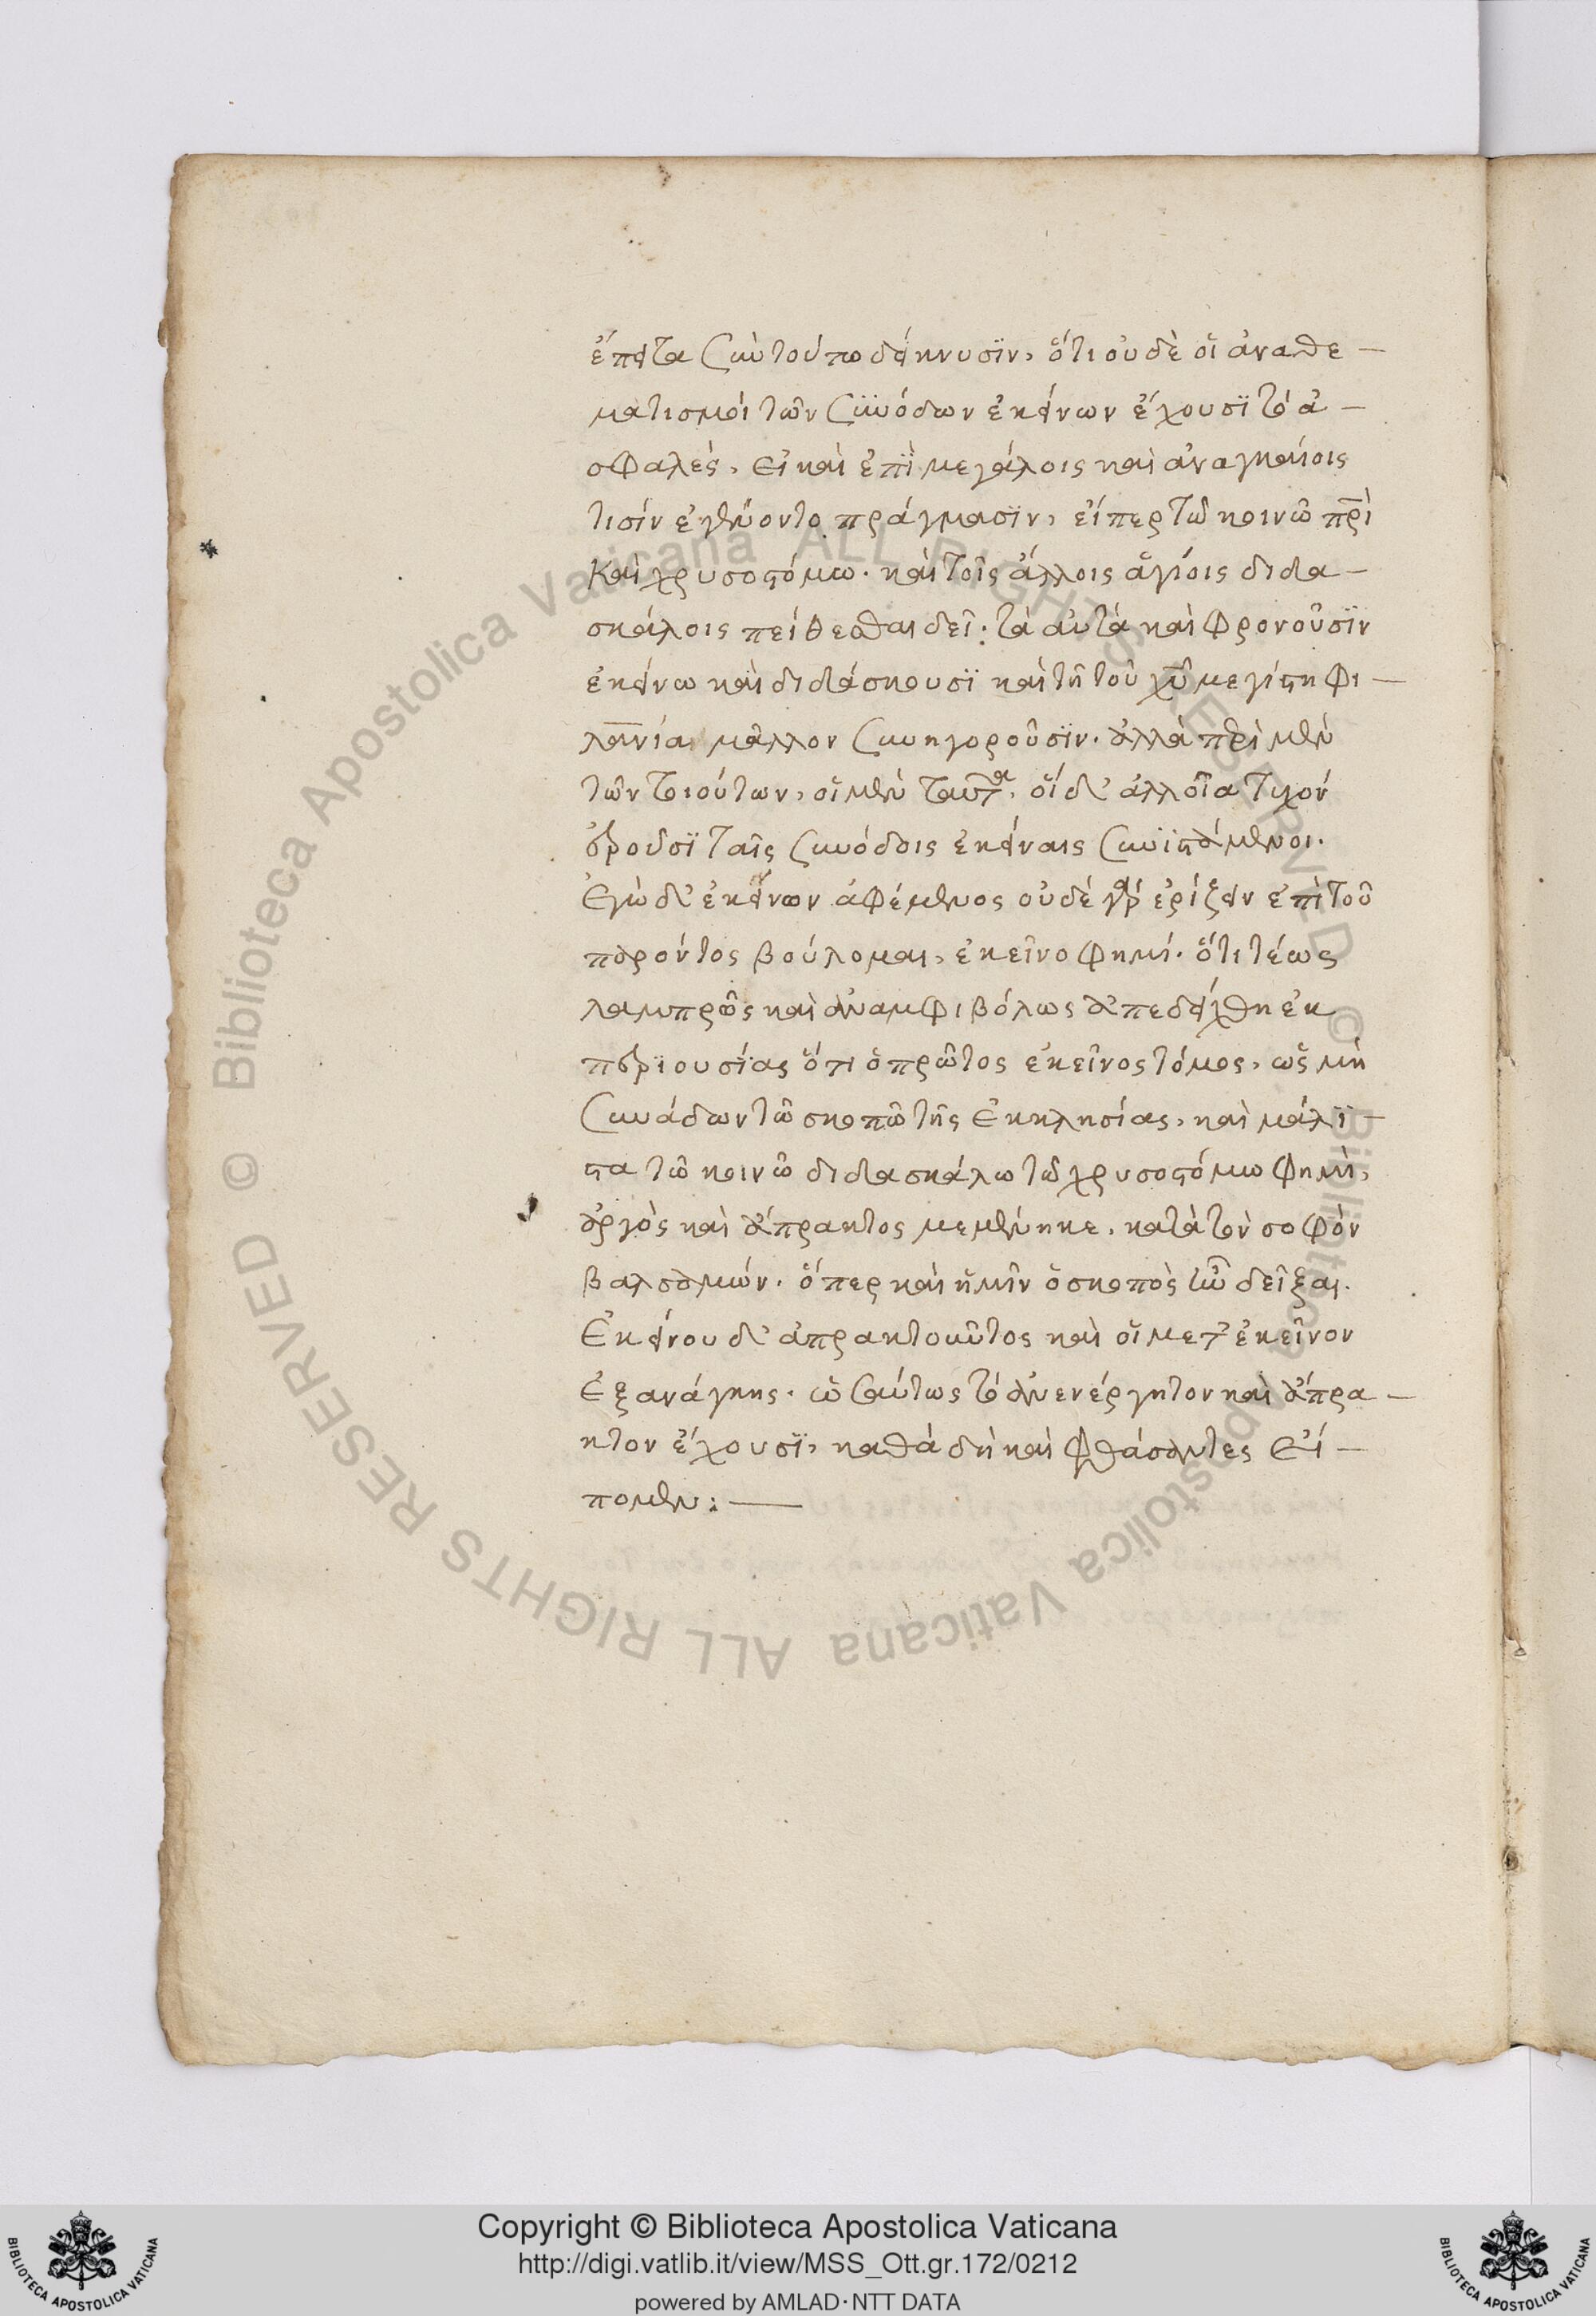 ἔπειτα συνυποδείκνυσϊν, ὅτι οὐδὲ οἱ ἀναθε-
ματισμοὶ τῶν συνόδων ἐκείνων ἔχουσϊ τὸ ἀ-
σφαλές, εἰ καὶ ἐπὶ μεγάλοις καὶ ἀναγκαίοις
τισὶν ἐγένοντο πράγμασϊν, εἴπερ τῶ κοινῶ πρὶ
καὶ χρυσοστόμω. καὶ τοῖς ἄλλοις ἁγίοις διδα-
σκάλοις πείθεσθαι δεῖ. τὰ αὐτὰ καὶ φρονοῦσϊν
ἐκείνω καὶ διδάσκουσϊ καὶ τῆ τοῦ χῦ μεγίστη φι-
λανία μᾶλλον συνηγοροῦσϊν. ἀλλὰ περὶ μὲν
τῶν τοιούτων, οἱ μὲν ταῦτα, οἱ δ' ἀλλοῖα τυχὸν
ἐροῦσϊ ταῖς συνόδοις ἐκείναις συνϊστάμενοι.
Ἐγὼ δ' ἐκείνων ἀφέμενος οὐδὲ γὰρ ἐρίζειν ἐπὶ τοῦ
παρόντος βούλομαι, ἐκεῖνο φημί. ὅτι τέως
λαμπρῶς καὶ ἀναμφιβόλως ἀπεδείχθη ἐκ
περϊουσίας ὅτι ὁ πρῶτος ἐκεῖνος τόμος, ὡς μὴ
συνάδων τῶ σκοπῶ τῆς Ἐκκλησίας, καὶ μάλϊ-
στα τῶ κοινῶ διδασκάλω τῶ χρυσοστόμω φημὶ,
ἀργὸς καὶ ἄπρακτος μεμένηκε, κατὰ τὸν σοφὸν
βαλσαμών. ὅπερ καὶ ἡμῖν ὁ σκοπὸς ἦν δεῖξαι.
Ἐκείνου δ' ἀπρακτοῦντος καὶ οἱ μετ' ἐκεῖνον
ἐξανάγκης. ὡσαύτως τὸ ἀνενέργητον καὶ ἄπρα-
κτον ἔχουσϊ, καθὰ δὴ καὶ φθάσαντες εἴ-
πομεν:—
Copyright © Biblioteca Apostolica Vaticana
http://digi.vatlib.it/view/MSS_Ott.gr.172/0212
powered by AMLAD·NTT DATA